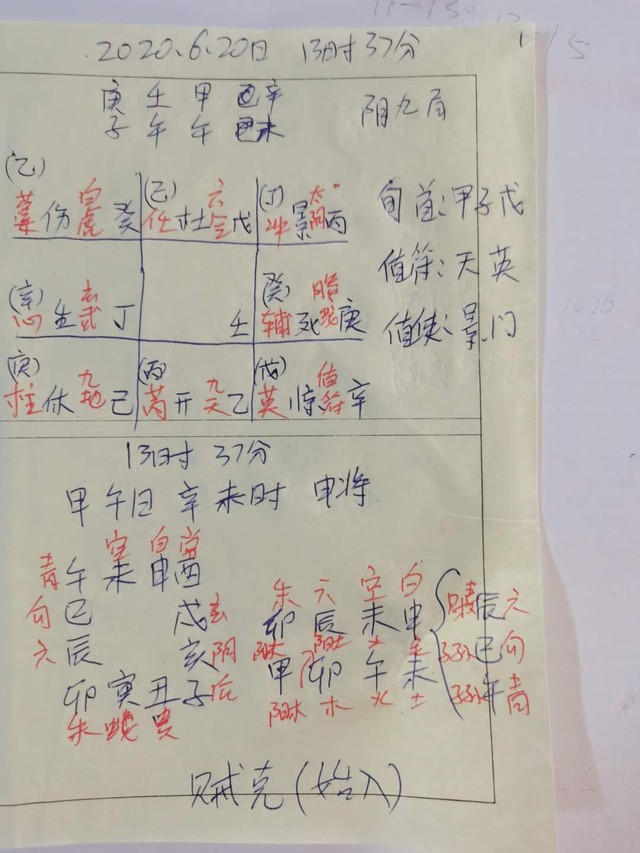 2020.6.20日 13时37分
庚 壬 甲 辛
子 午 午 未
阴九局
(乙) (己) (丁)
蓬伤白虎癸 任杜六合戊 冲景太阴丙
旬首:甲子戊
值符:天英
值使:景门
(辛) (癸)
心生玄武丁 壬 辅死螣蛇庚
(庚) (丙) (戊)
柱休九地己 芮开九天乙 英惊值符辛
13时37分
甲午日 辛未时 申将
空 白 常
青 午 未 申 酉
勾 巳 戌 玄
六 辰 亥 阴
卯 寅 丑 子 后
朱 蛇 贵
朱 六 空 白
卯 辰 未 申
阴木 阳土 土 金
甲 卯 午 未
阳木 木 火 土
财 辰 六
孙 巳 勾
孙 午 青
贼克(始入)